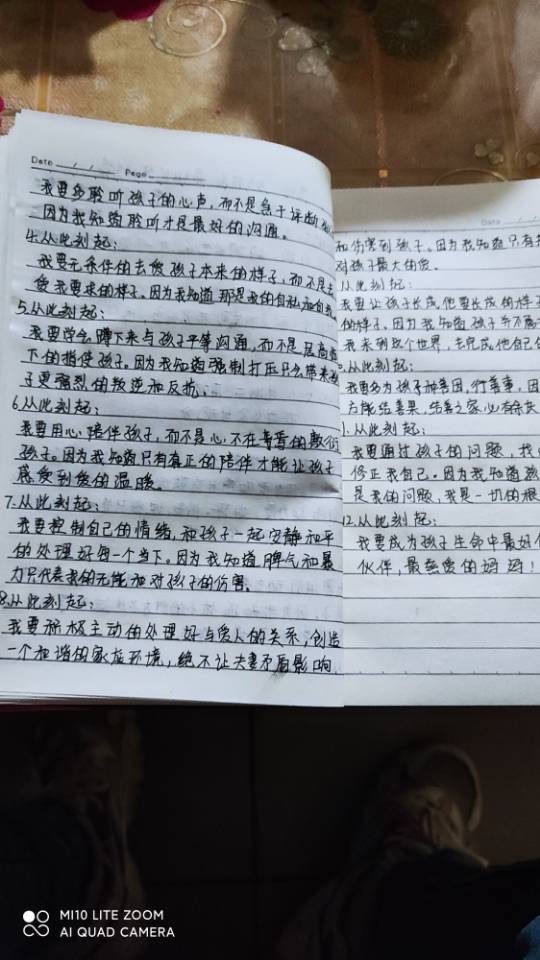 Date / / Page
我要多聆听孩子的心声，而不是急于评断
因为我知道聆听才是最好的沟通。
4.从此刻起：
我要无条件的去爱孩子本来的样子，而不是去
爱我要求的样子。因为我知道那是我的自私和自
5.从此刻起：
我要学会蹲下来与孩子平等沟通，而不是居高临
下的指使孩子。因为我知道强制打压只会带来孩
子更强烈的叛逆和反抗。
6.从此刻起：
我要用心陪伴孩子，而不是心不在焉的敷衍
孩子。因为我知道只有真正的陪伴才能让孩子
感受到爱的温暖。
7.从此刻起：
我要控制自己的情绪，和孩子一起安静和平
的处理好每一个当下。因为我知道脾气和暴
力只代表我的无能和对孩子的伤害。
8.从此刻起：
我要积极主动的处理好与爱人的关系，创造
一个和谐的家庭环境，绝不让夫妻矛盾影响
Date
和伤害到孩子。因为我知道只有
对孩子最大的爱。
从此刻起：
我要让孩子长成他要长成的样子
的样子。因为我知道孩子并不属
我来到这个世界，去完成他自己
从此刻起：
我要多为孩子种善因，行善事，因
方能结善果，结善之家必有余庆
1.从此刻起：
我要通过孩子的问题，找
修正我自己。因为我知道孩
是我的问题，我是一切的根
12.从此刻起：
我要成为孩子生命中最好
伙伴，最智慧的妈妈！
MI10 LITE ZOOM
AI QUAD CAMERA